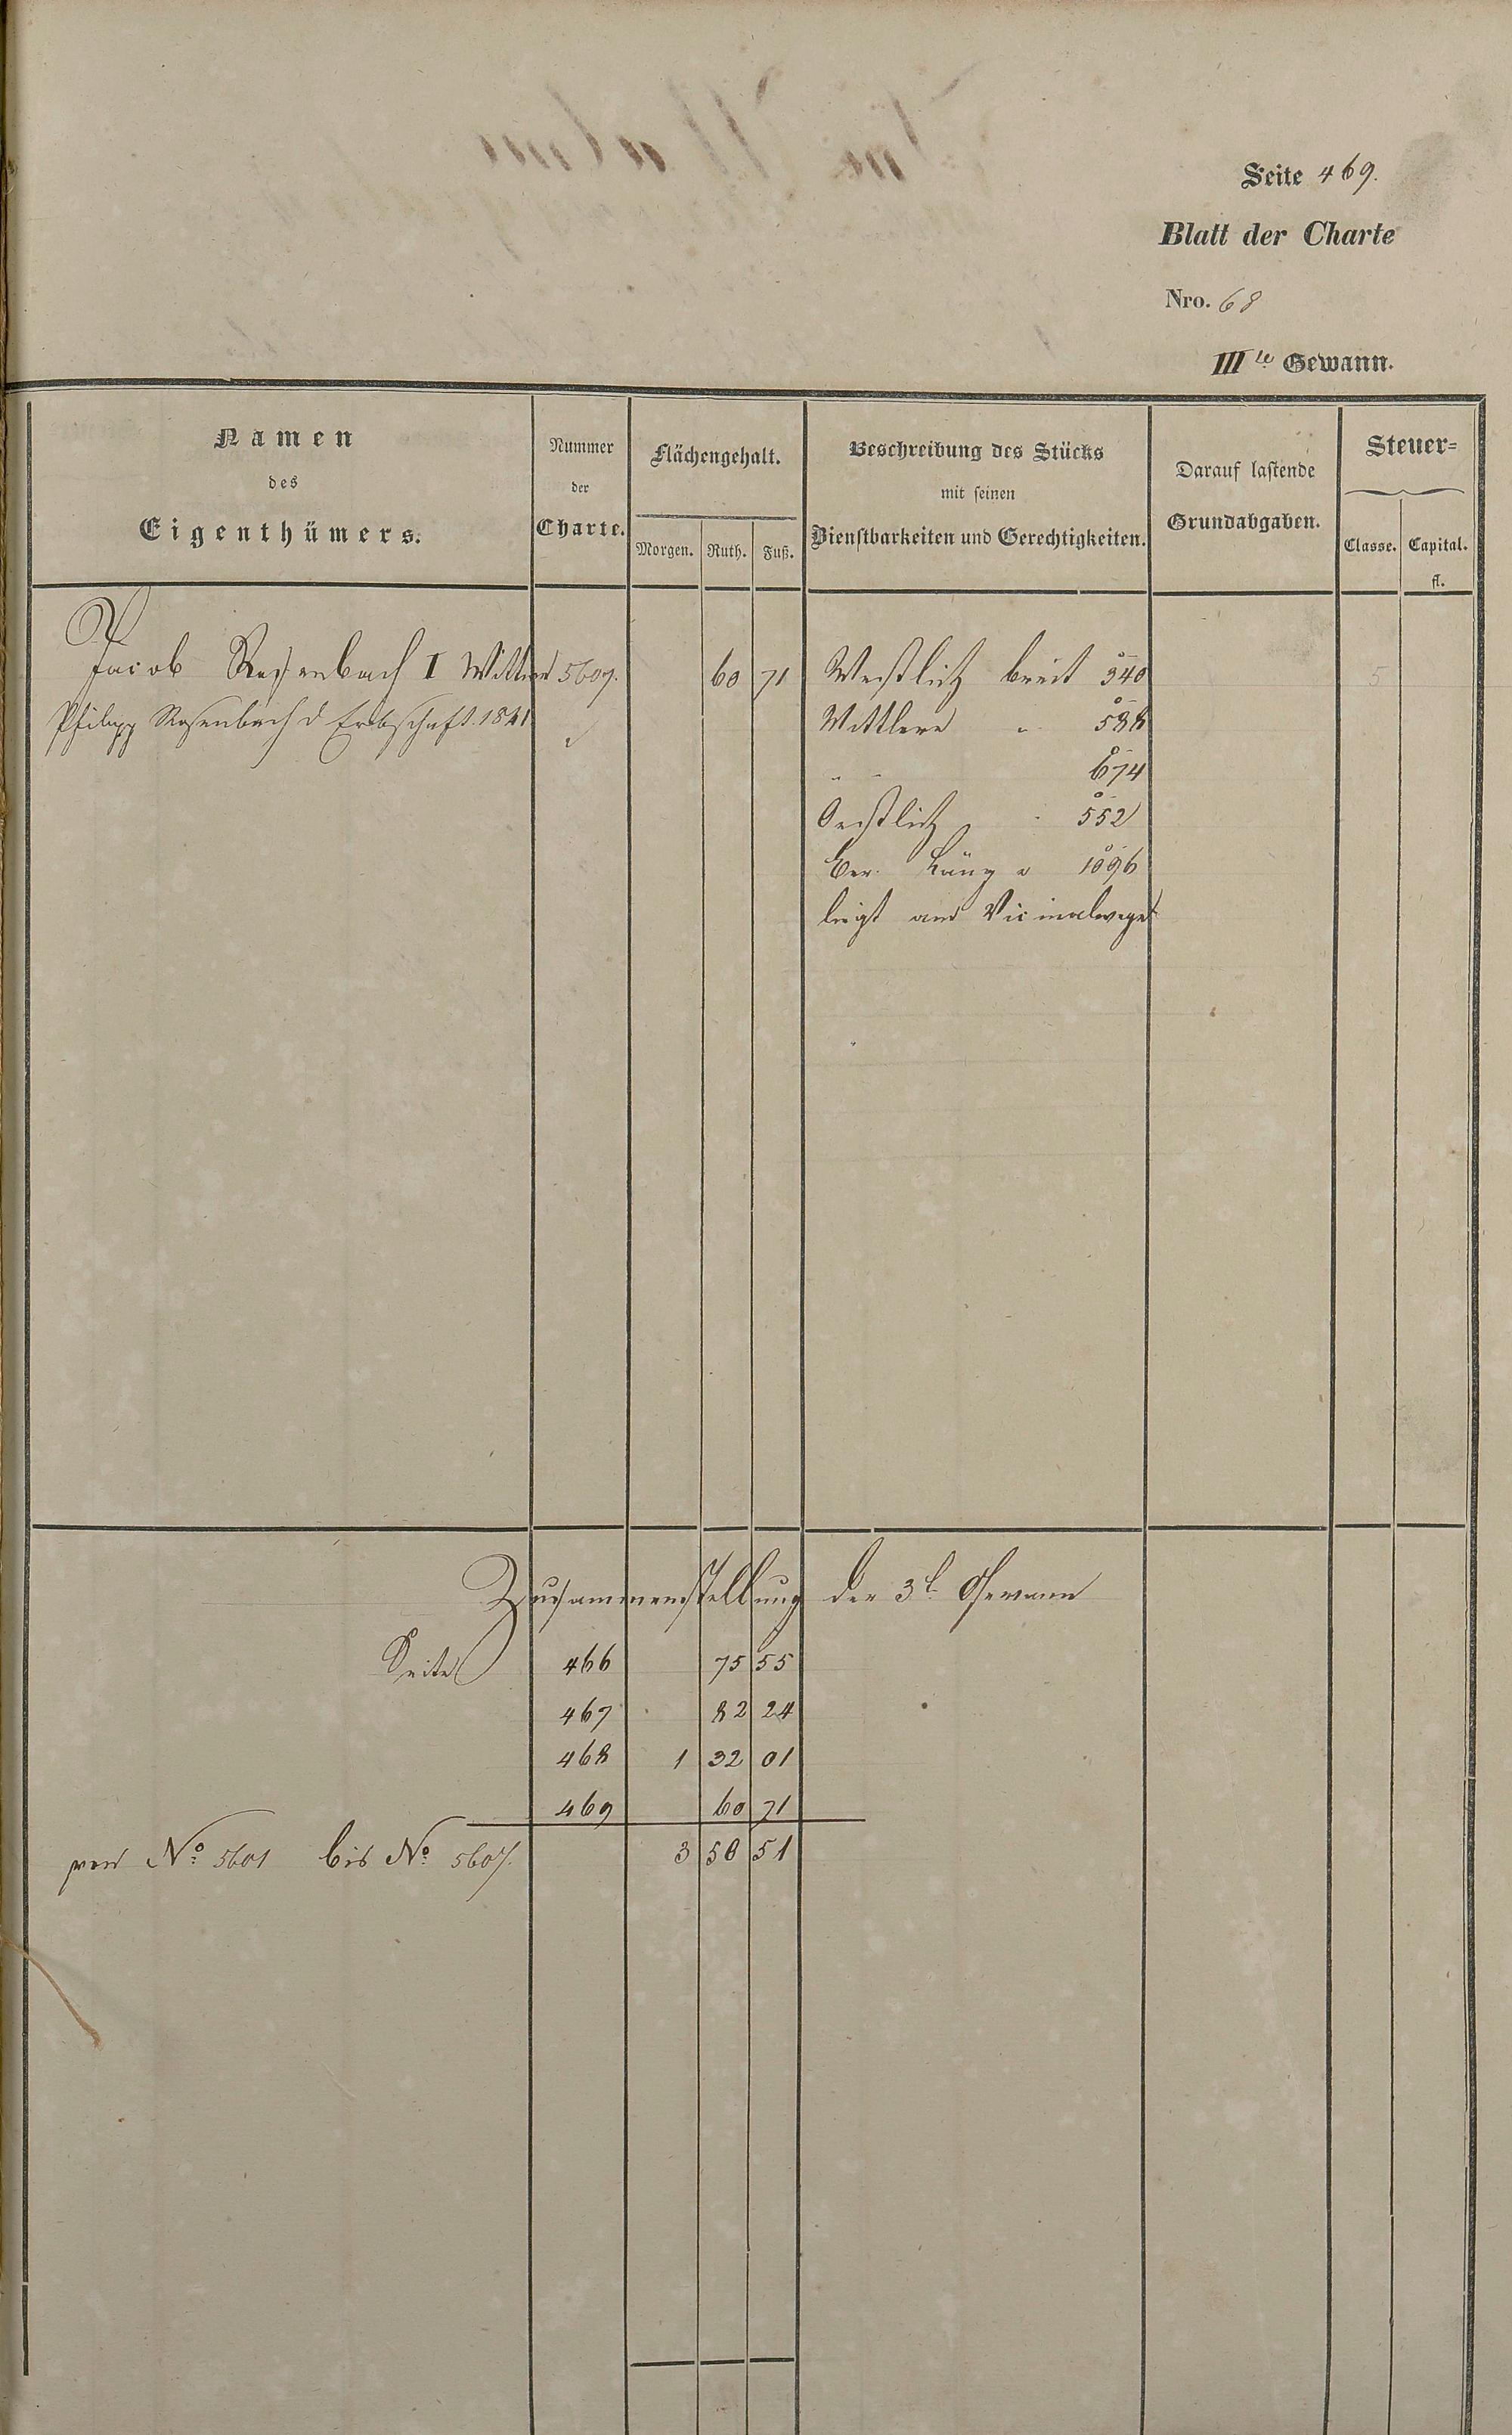 Seite 469.
Blatt der Charte
Nro. 68
III te Gewann.
Namen des Eigenthümers.
Nummer der Charte.
Flächengehalt.
Morgen. Ruth. Fuß.
Beschreibung des Stücks mit seinen Dienstbarkeiten und Gerechtigkeiten.
Darauf lastende Grundabgaben.
Steuer=
Classe. Capital.
fl.
Jacob Rosenbach I Wittwe 5607. 60 71 Westlich breit 540 5
Philipp Rosenbach d Erbschaft 1841 Mittlere " 588
" " 674
Oestlich " 552
Ber. Länge 1096
liegt am Vicinalwege
Zusammenstellung der 3t Gewann
Seite 466 75 55
467 82 24
468 1 32 01
469 60 71
von No 5601 bis No 5607. 3 50 51